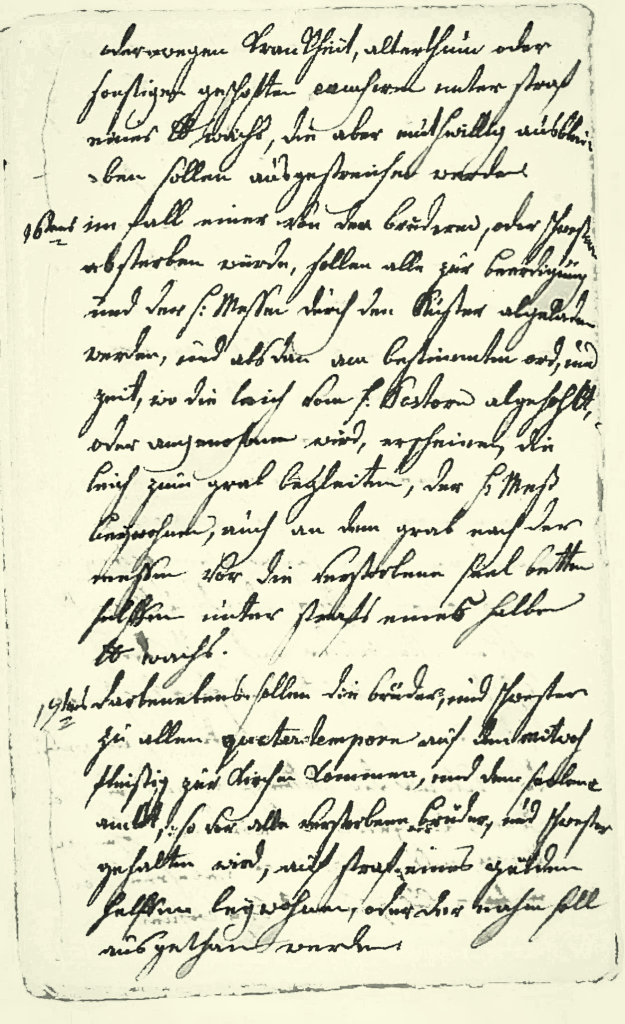 oder wegen Krankheit, alterthum oder
sonstigen geschäften unter straf
eines lb wachs, die aber muthwillig ausblei-
ben sollen ausgestrichen werden
im fall einer von den brüdern, oder schwestern
absterben würde, sollen alle zur beerdigung
und der h: Messen durch den Küster abgeladen
werden, und alsdan am bestimmten ord, und
zeit, wo die leich vom h. Pastorn abgehohlt,
oder angenohmen wird, erscheinen, die
leich zum grab begleiten, der h: Meß
beywohnen, auch an dem grab nach der
messen vor die verstorbene seel betten
helffen unter straf eines halben
lb wachs.
19tens darbenebens sollen die brüder, und schwester
zu allen quatertemporn auf den mitwoch
fleißig zur Kirchen kommen, und dem seelen
ambt, so vor alle verstorbene brüder, und schwester
gehalten wird, auf straf eines gülden
helffen beywohnen, oder der nahm soll
ausgethan werden